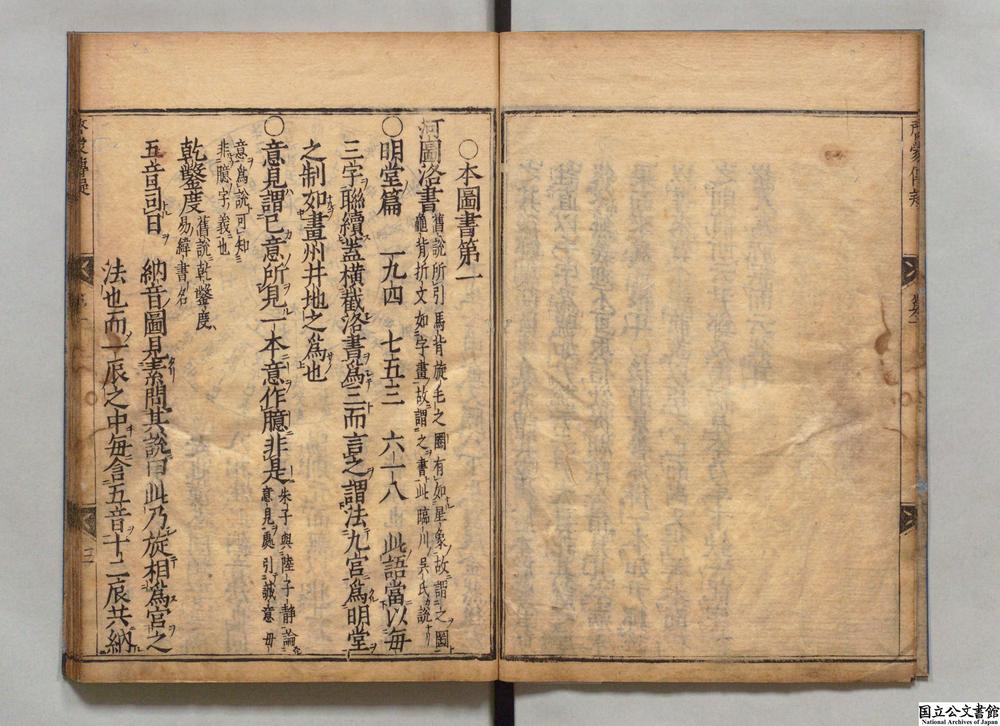 〇本圖書第一
河圖洛書 舊說所引馬背旋毛之圈有如星象故謂之圖
龜背折文如字畫故謂之書此臨川吳氏說
〇明堂篇 二九四 七五三 六一八 也此語當以每
三字聯續蓋橫截洛書爲三而言之謂法九宮爲明堂
之制如畫州井地之爲也
〇意見謂己意所見一本意作臆非是 朱子與陸子靜論
意見處引誠意毋
意爲說可知
非臆字義也
乾鑿度 舊說乾鑿度
易緯書名
五音司日 納音圖見素問其說曰此乃旋相爲宮之
法也而一辰之中每含五音十二辰共納
三
国立公文書館
National Archives of Japan